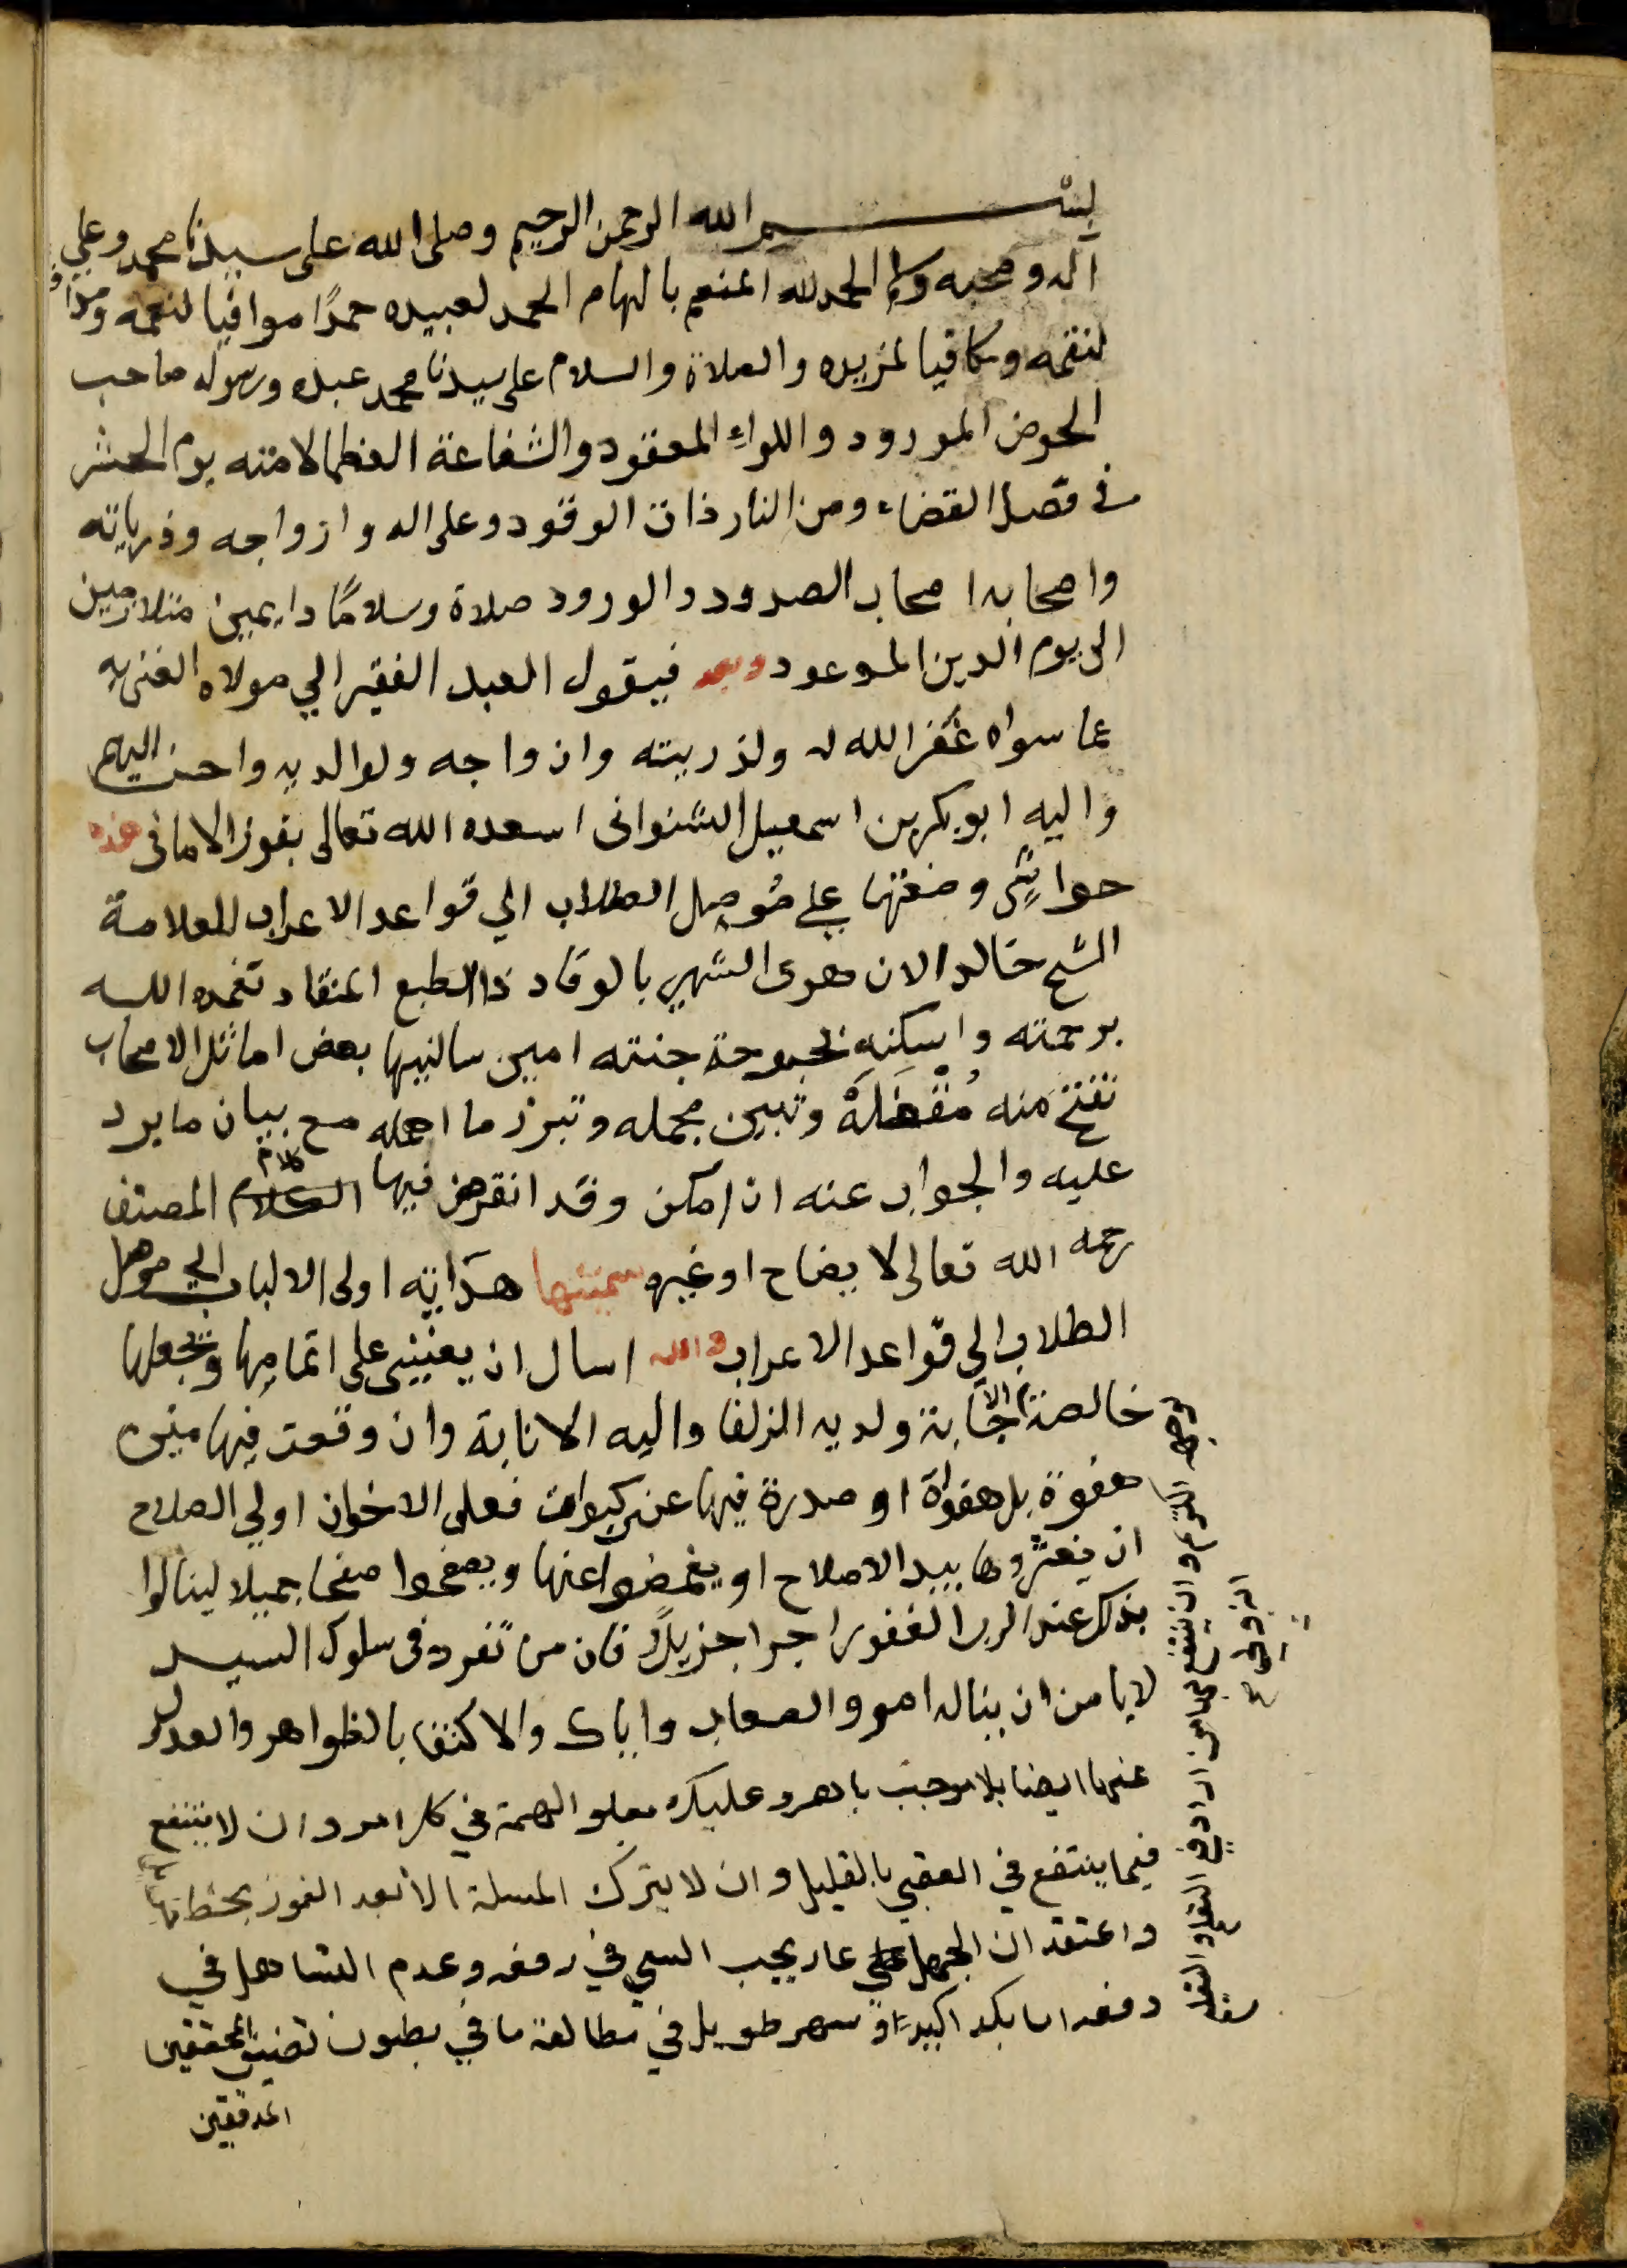 بسم الله الرحمن الرحيم وصلى الله على سيدنا محمد وعلى
اله وصحبه وسلم الحمد لله المنعم بالهام الحمد لعبيده حمدًا موافيا لنعمه ومدافعا
لنقمه ومكافيا لمزيده والصلاة والسلام على سيدنا محمد عبده ورسوله صاحب
الحوض المورود واللواءِ المعقود والشفاعة العظما لامته يوم الحشر
في فصل القضاء ومن النار ذات الوقود وعلى اله وازواجه وذرياته
واصحابه اصحاب الصدود والورود صلاة وسلامًا دايمين متلازمين
الى يوم الدين الموعود وبعد فيقول العبد الفقير الي مولاه الغني به
عما سواه غفر الله له ولذريته وازواجه ولوالديه واحسن اليهم
واليه ابوبكر بن اسمعيل الشنوانى اسعده الله تعالى بفوز الامانى هذه
حواشي وضعتها على مُوصِل الطلاب الي قواعد الاعراب للعلامة
الشيخ خالد الازهرى الشهير بالوقاد ذا الطبع المنقاد تغمده الله
برحمته واسكنه بحبوحة جنته امين سالنيها بعض اماثل الاصحاب
تفتح منه مُقْفَلَهُ وتبين مجمله وتبرز ما اهمله مع بيان ما يرد
عليه والجواب عنه ان امكن وقد انقرض فيها كلام المصنف
رحمه الله تعالى لا يضاح او غيره سميتها هداية اولى الالباب الي موصل
الطلاب الي قواعد الاعراب والله اسال ان يعينني على اتمامها ويجعلها
خالصة الاجابة ولديه الزلفا واليه الانابة وان وقعت فيها مني
هفوة بل هفواة او صدرة فيها عن كبوات فعلى الاخوان اولي الصلاح
ان يعثروها بيد الاصلاح او يغمضوا عنها ويصفحوا صفحا جميلا لينالوا
بذلك عند الرب الغفور اجرا جزيلاً فان من تفرد فى سلوك السيد
لا يامن ان يناله امور الصعاب واياك والاكتفا بالظواهر والعدول
عنها ايضا بلا موجب باهر وعليك بعلو الهمة في كل امر وان لا ينتفع
فيما ينتفع في العقبي بالقليل وان لا يترك المسلة الا بعد الفوز
واعتقد ان الجهل عار يجب السعي في رفعه وعدم التساهل في
دفعه اما بكد اكيد او سهر طويل في مطالعة ما في بطون تصنيف المحققين
المدققين